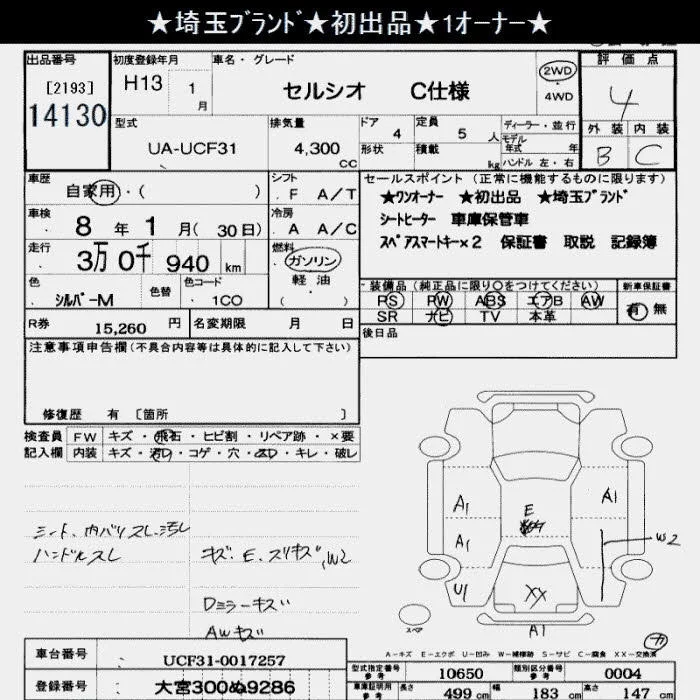 ★埼玉ﾌﾞﾗﾝﾄﾞ★初出品★1オーナー★
出品番号
[2193]
14130
初度登録年月
H13 1月
車名・グレード
セルシオ C仕様
2WD
4WD
評価点
4
外装 内装
B C
型式
UA-UCF31
排気量
4,300 CC
ドア 4
形状
定員 5 人
積載 kg
ディーラー・並行
モデル年式 年
ハンドル 左・右
車歴
自家用・( )
シフト
F A/T
セールスポイント(正常に機能するものに限ります)
★ﾜﾝオーナー ★初出品 ★埼玉ﾌﾞﾗﾝﾄﾞ
シートヒーター 車庫保管車
スペアスマートキー×2 保証書 取説 記録簿
車検
8年 1月(30日)
冷房
A A/C
走行
3万 0千 940 km
燃料
ガソリン
軽油
( )
色
ｼﾙﾊﾞｰM
色替
色コード
1CO
装備品(純正品に限り〇をつけてください)
PS PW ABS エアB AW
SR ナビ TV 本革
新車保証書
有 無
R券 15,260 円
名変期限 月 日
後日品
注意事項申告欄(不具合内容等は具体的に記入して下さい)
修復歴 有 [箇所 ]
検査員
記入欄
FW キズ・飛石・ヒビ割・リペア跡・×要
内装 キズ・汚れ・コゲ・穴・スレ・キレ・破レ
シート、内バリスレ、汚レ
ハンドルスレ
キズ、E、スリキズ、W2
Dミラーキズ
AWキズ
A1
A1
A1
U1
E
W2
XX
A1
スペア
A-キズ E-エクボ U-凹み W-補修跡 S-サビ C-腐食 XX-交換済
車台番号
UCF31-0017257
登録番号
大宮300ぬ9286
型式指定番号 参考
10650
類別区分番号 参考
0004
車庫証明用 参考
長さ 499 cm
幅 183 cm
高さ 147 cm